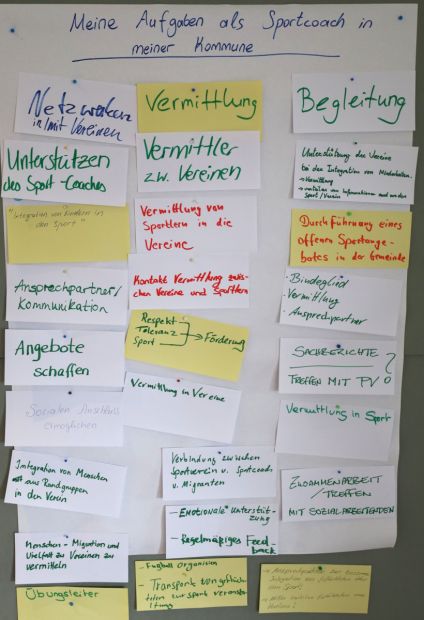 Meine Aufgaben als Sportcoach in
meiner Kommune
Netzwerken
in/mit Vereinen
Unterstützen
des Sport-Coaches
"Integration von Kindern in
den Sport"
Ansprechpartner/
Kommunikation
Angebote
schaffen
Sozialen Anschluss
ermöglichen
Integration von Menschen
aus Randgruppen
in den Verein
Menschen - Migration und
Vielfalt zu Vereinen zu
vermitteln
Übungsleiter
Vermittlung
Vermittler
zw. Vereinen
Vermittlung von
Sportlern in die
Vereine
Kontakt Vermittlung zwis-
chen Vereine und Sportlern
Respekt
Toleranz
Sport
→ Förderung
Vermittlung in Vereine
Verbindung zwischen
Sportverein u. Sportcoach
u. Migranten
- Emotionale Unterstüt-
zung
- Regelmäßiges Feed-
back
- Fußball Organisieren
- Transport von
zur Sport
Begleitung
Unterstützung der Vereine
bei der Integration von
→ Vermittlung
→ von Informationen
Sport/Verein
Durchführung eines
offenen Sportange-
botes in der Gemeinde
· Bindeglied
· Vermittlung
· Ansprechpartner
SACHBERICHTE
TREFFEN MIT PV ?
Vermittlung in Sport
ZUSAMMENARBEIT
/ TREFFEN
MIT SOZIALARBEITENDEN